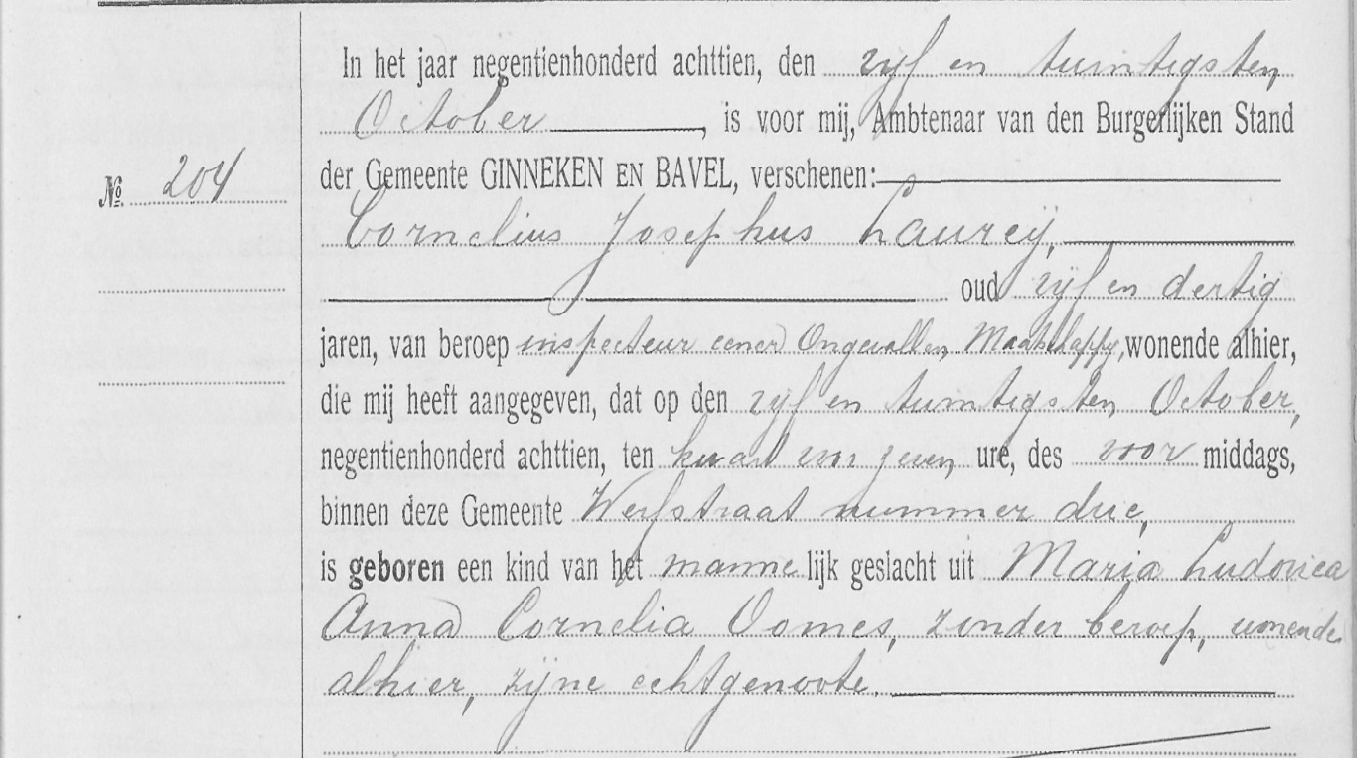 In het jaar negentienhonderd achttien, den vijf en twintigsten
October, is voor mij, Ambtenaar van den Burgerlijken Stand
der Gemeente GINNEKEN EN BAVEL, verschenen:
No. 204
Cornelius Josephus Laureij,
oud vijf en dertig
jaren, van beroep inspecteur eener Ongevallen Maatschappy, wonende alhier,
die mij heeft aangegeven, dat op den vijf en twintigsten October,
negentienhonderd achttien, ten kwart voor zeven ure, des voor middags,
binnen deze Gemeente Werfstraat nummer drie,
is geboren een kind van het mannelijk geslacht uit Maria Ludovica
Anna Cornelia Oomes, zonder beroep, wonende
alhier, zijne echtgenoote.